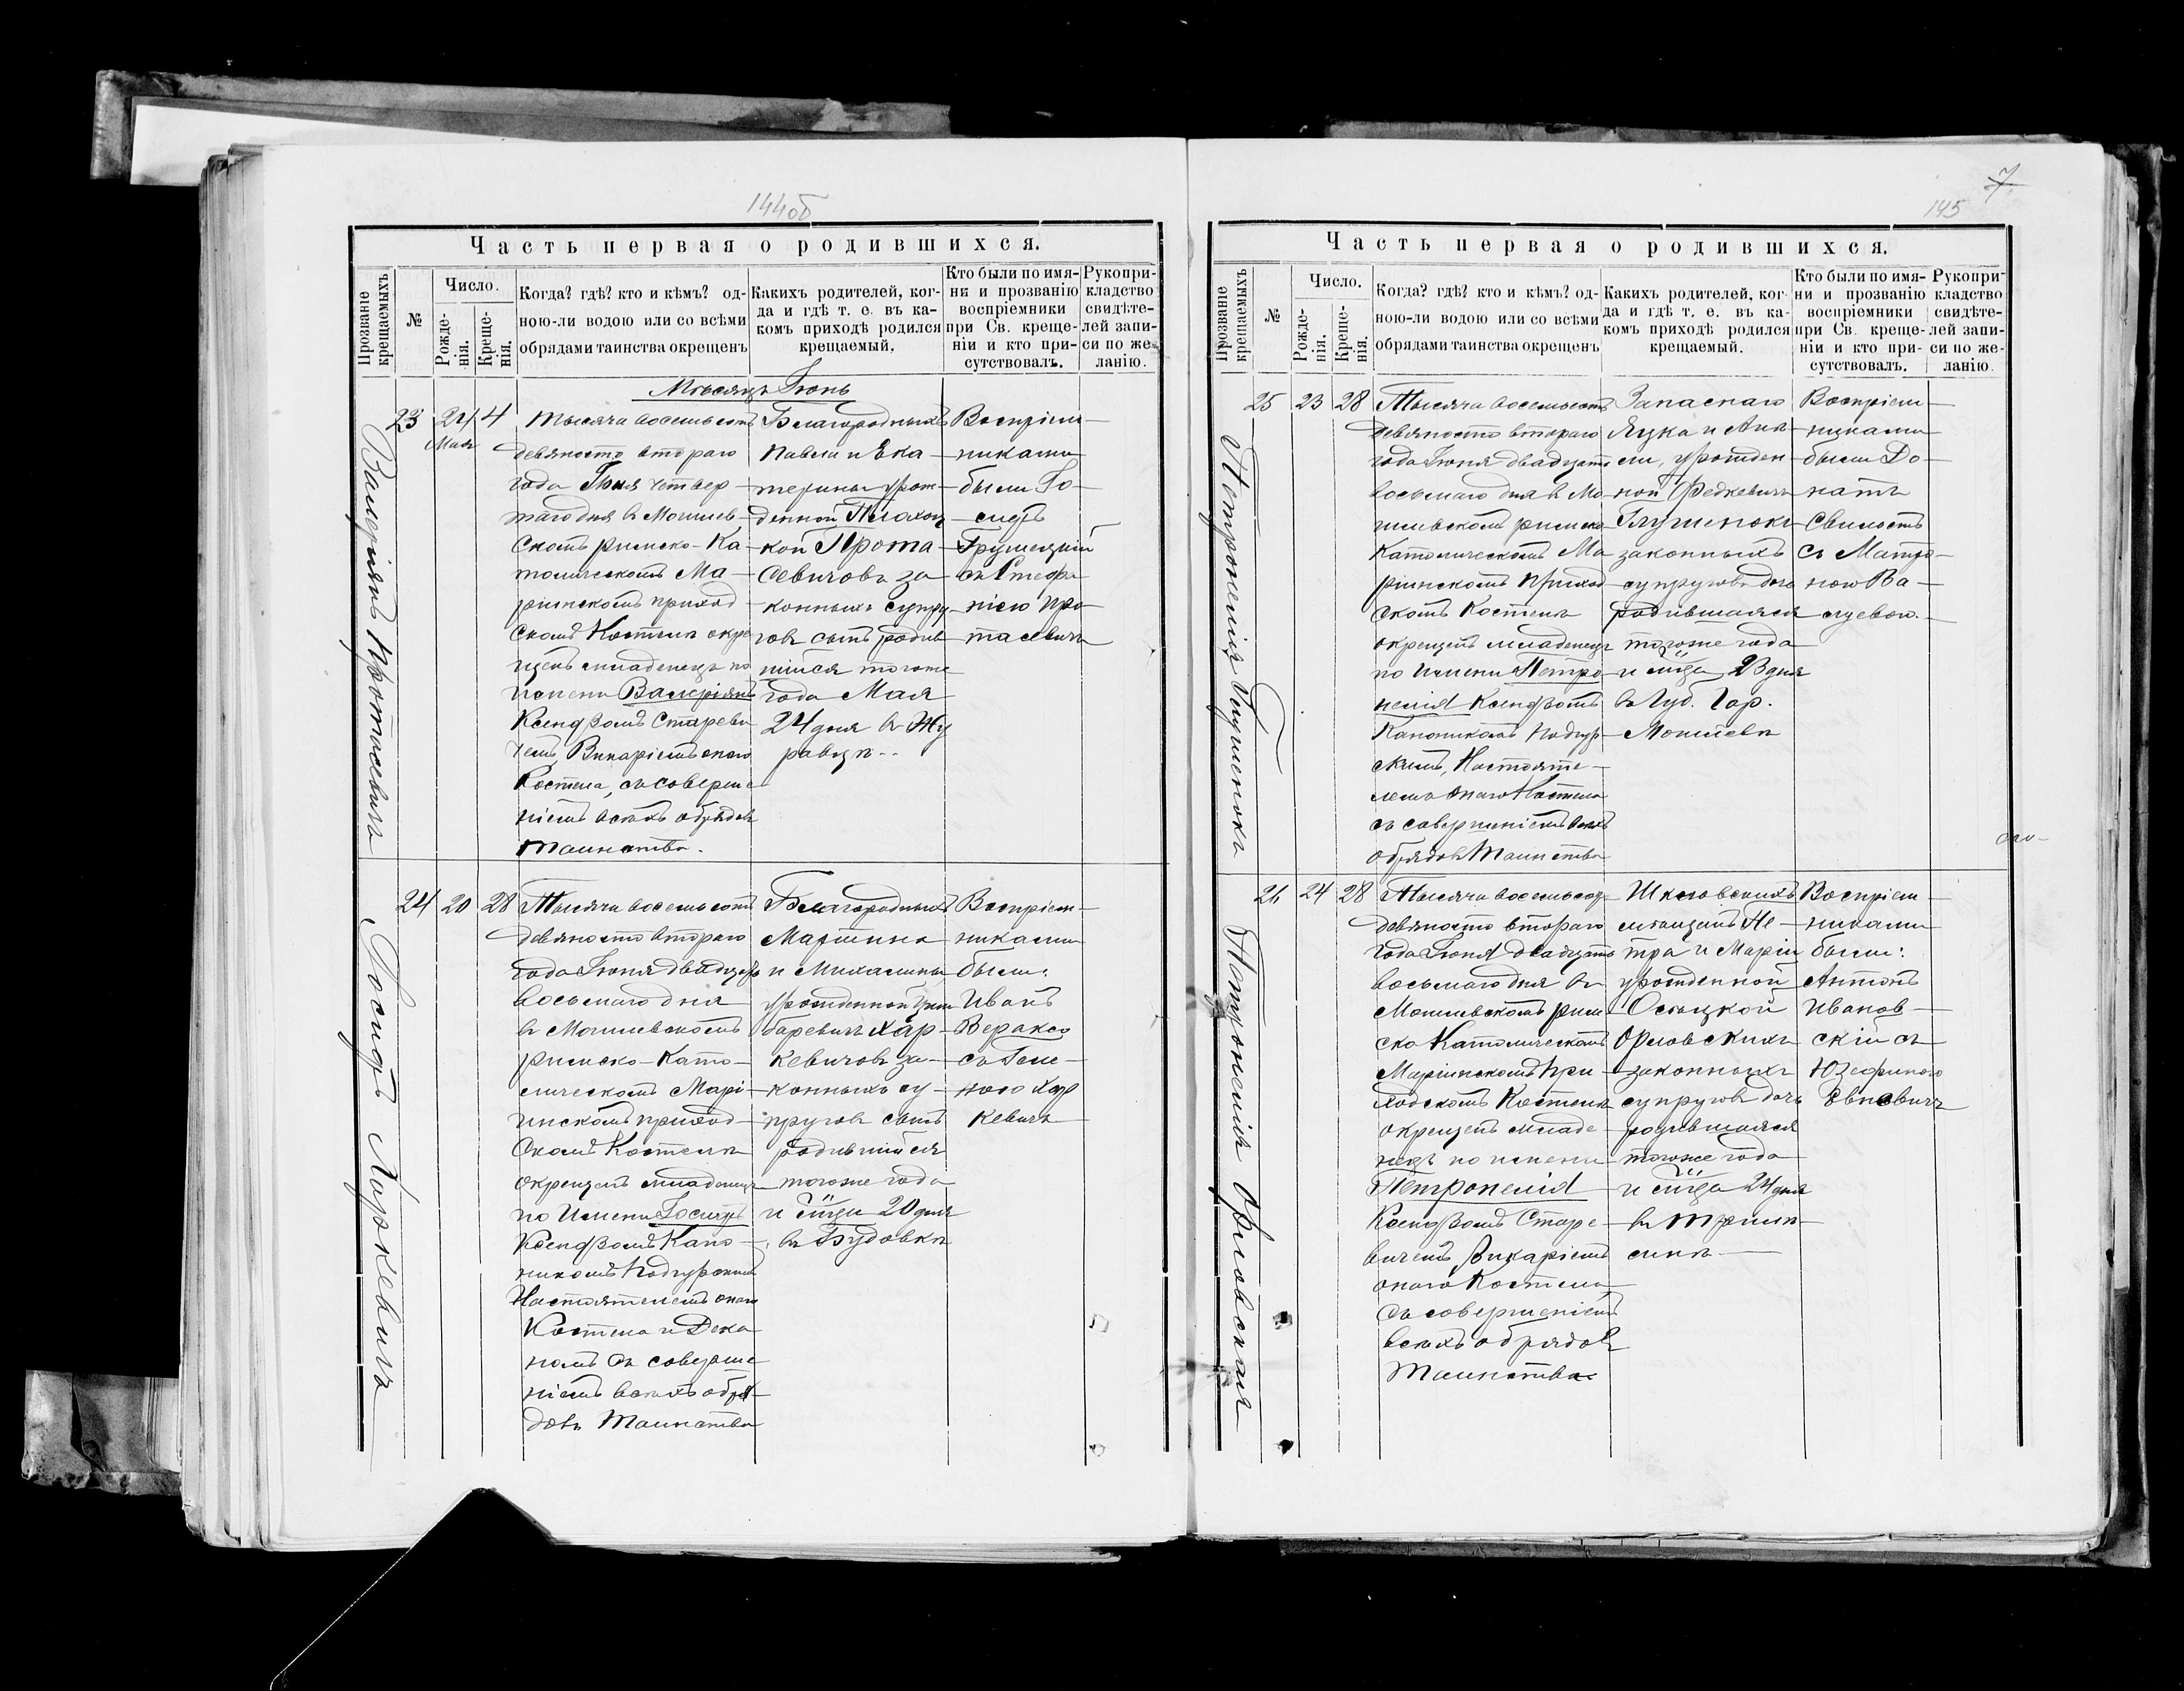 144об
Часть первая о родившихся.
Прозваніе крещаемыхъ
№
Число.
Рожде-
нія.
Креще-
нія.
Когда? гдѣ? кто и кѣмъ? од-
ною-ли водою или со всѣми
обрядами таинства окрещенъ
Какихъ родителей, ког-
да и гдѣ т. е. въ ка-
комъ приходѣ родился
крещаемый,
Кто были по имя-
ни и прозванію
воспріемники
при Св. креще-
ніи и кто при-
сутствовалъ.
Рукопри-
кладство
свидѣте-
лей запи-
си по же-
ланію.
Мѣсяцъ Іюнь
Валеріянъ Протасевичъ
23
24
Мая
4
Тысяча восемьсотъ
девяносто втораго
года Іюня четвер
таго дня въ Могилев
скомъ римско-Ка-
толическомъ Ма-
ріинскомъ приход
скомъ Костелѣ окре
щенъ младенецъ по
имени Валеріянъ
Ксендзомъ Стареви
чемъ, Викаріемъ онаго
Костела, съ соверше
ніемъ всѣхъ обрядовъ
Таинства.
Благородныхъ
Павла и Ека-
терины урож-
денной Плохоц
кой Прота-
севичовъ за-
конныхъ супру-
говъ сынъ родив
шійся тогоже
года Мая
24 дня въ Жу
равцѣ..
Воспріем-
никами
были Іо-
сифъ
Грушецкій
съ Стефа
ніею Про
тасевичъ
Іосифъ Харкевичъ
24
20
28
Тысяча восемьсотъ
девяносто втораго
года Іюня двадцать
восьмаго дня
въ Могилевскомъ
римско-Като-
лическомъ Марі-
инскомъ приход-
скомъ Костелѣ
окрещенъ младенецъ
по имени Іосифъ
Ксендзомъ Кано-
никомъ Подгурскимъ
Настоятелемъ онаго
Костела и Дека
номъ съ соверше
ніемъ всѣхъ обря-
довъ Таинства
Благородныхъ
Мартина
и Михалины
урожденной
баревичъ Хар-
кевичовъ за-
конныхъ су-
пруговъ сынъ
родившійся
тогоже года
и м̃ца 20 дня
въ Будовкѣ
Воспріем-
никами
были:
Иванъ
Вераксо
съ Геле-
ною Хар
кевичъ
7
145
Часть первая о родившихся.
Прозваніе крещаемыхъ
№
Число.
Рожде-
нія.
Креще-
нія.
Когда? гдѣ? кто и кѣмъ? од-
ною-ли водою или со всѣми
обрядами таинства окрещенъ
Какихъ родителей, ког-
да и гдѣ т. е. въ ка-
комъ приходѣ родился
крещаемый.
Кто были по имя-
ни и прозванію
воспріемники
при Св. креще-
ніи и кто при-
сутствовалъ.
Рукопри-
кладство
свидѣте-
лей запи-
си по же-
ланію.
Петронелія Глушенокъ
25
23
28
Тысяча восемьсотъ
девяносто втораго
года Іюня двадцать
восьмаго дня въ Мо
гилевскомъ римско
Католическомъ Ма
ріинскомъ приход
скомъ Костелѣ
окрещенъ младенецъ
по имени Петро
нелія Ксендзомъ
Каноникомъ Подгур-
скимъ, Настояте-
лемъ онаго Костела
съ совершеніемъ всѣхъ
обрядовъ Таинства
Запаснаго
Яцка и Ана-
ліи, урожден
ной Федкевичъ
Глушенокъ
законныхъ
супруговъ дочь
родившаяся
тогоже года
и м̃ца 23 дня
въ Губ. Гор.
Могилевѣ
Воспріем-
никами
были До-
натъ
съ Матро-
ною Ва-
Петронелія Орловская
26
24
28
Тысяча восемьсотъ
девяносто втораго
года Іюня двадцать
восьмаго дня въ
Могилевскомъ рим
ско Католическомъ
Маріинскомъ при-
ходскомъ Костелѣ
окрещенъ младе-
нецъ по имени
Петронелія
Ксендзомъ Старе-
вичемъ, Викаріемъ
онаго Костела
съ совершеніемъ
всѣхъ обрядовъ
Таинства
Шкловскихъ
мѣщанъ Пе-
тра и Маріи
урожденной
Осѣцкой
Орловскихъ
законныхъ
супруговъ дочь
родившаяся
тогоже года
и м̃ца 24 дня
Воспріем-
никами
были:
Антонъ
Иванов-
скій съ
Юзефиною